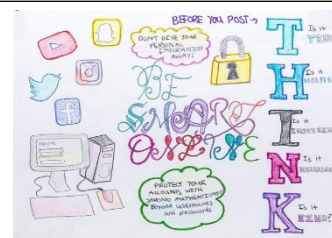 BEFORE YOU POST →
DON'T GIVE YOUR
PERSONAL
INFORMATION
AWAY!
BE
SMART
ONLINE
PROTECT YOUR
ACCOUNTS WITH
STRONG AUTHENTICATION
Beyond usernames
and passwords
T Is it
TRUE?
H Is it
I Is it
N Is it
K Is it
KIND?